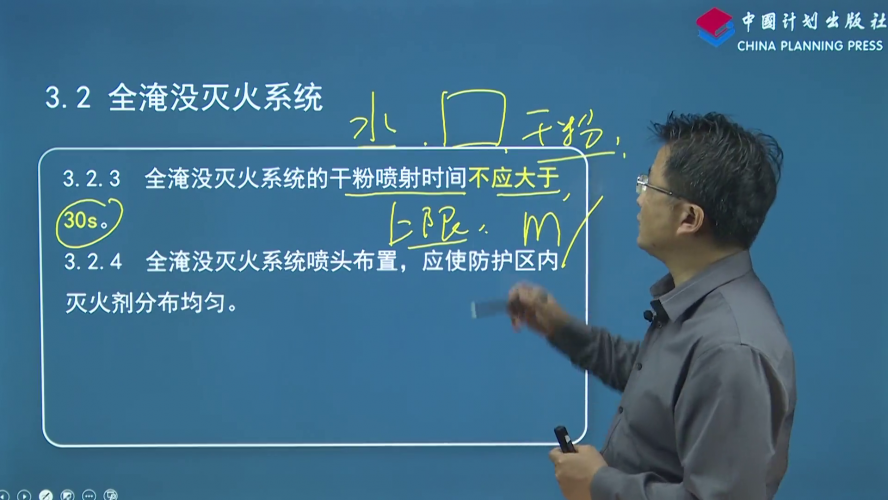 中国计划出版社
CHINA PLANNING PRESS
3.2 全淹没灭火系统
水 干粉
3.2.3 全淹没灭火系统的干粉喷射时间不应大于
30s。
上限 m/
3.2.4 全淹没灭火系统喷头布置，应使防护区内
灭火剂分布均匀。